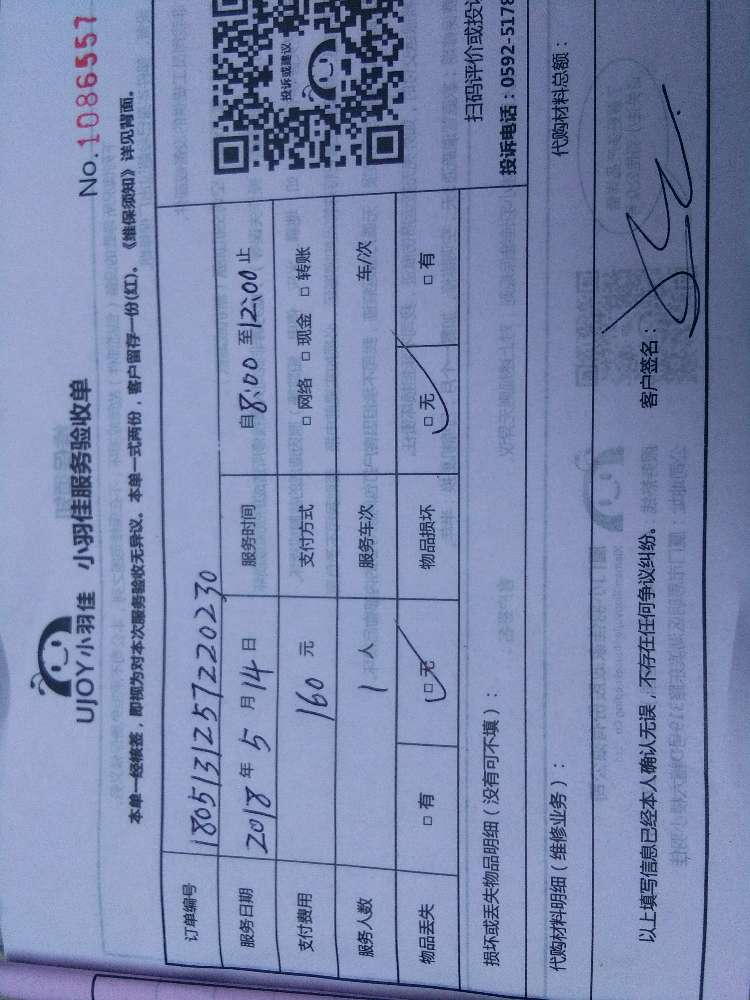 UJOY小羽佳 小羽佳服务验收单
No.1086557
本单一经核签，即视为对本次服务验收无异议。本单一式两份，客户留存一份(红)。《维保须知》详见背面。
订单编号 1805131257220230
服务日期 2018 年 5 月 14 日 服务时间 自8:00 至12:00止
支付费用 160 元 支付方式 □ 网络 □ 现金 □ 转账
服务人数 1 人 服务车次 车/次
物品丢失 □ 有 □ 无 物品损坏 □ 无 □ 有
投诉或建议
扫码评价或投诉
投诉电话：0592-5178
损坏或丢失物品明细（没有可不填）：
代购材料明细（维修业务）： 代购材料总额：
以上填写信息已经本人确认无误，不存在任何争议纠纷。 客户签名：